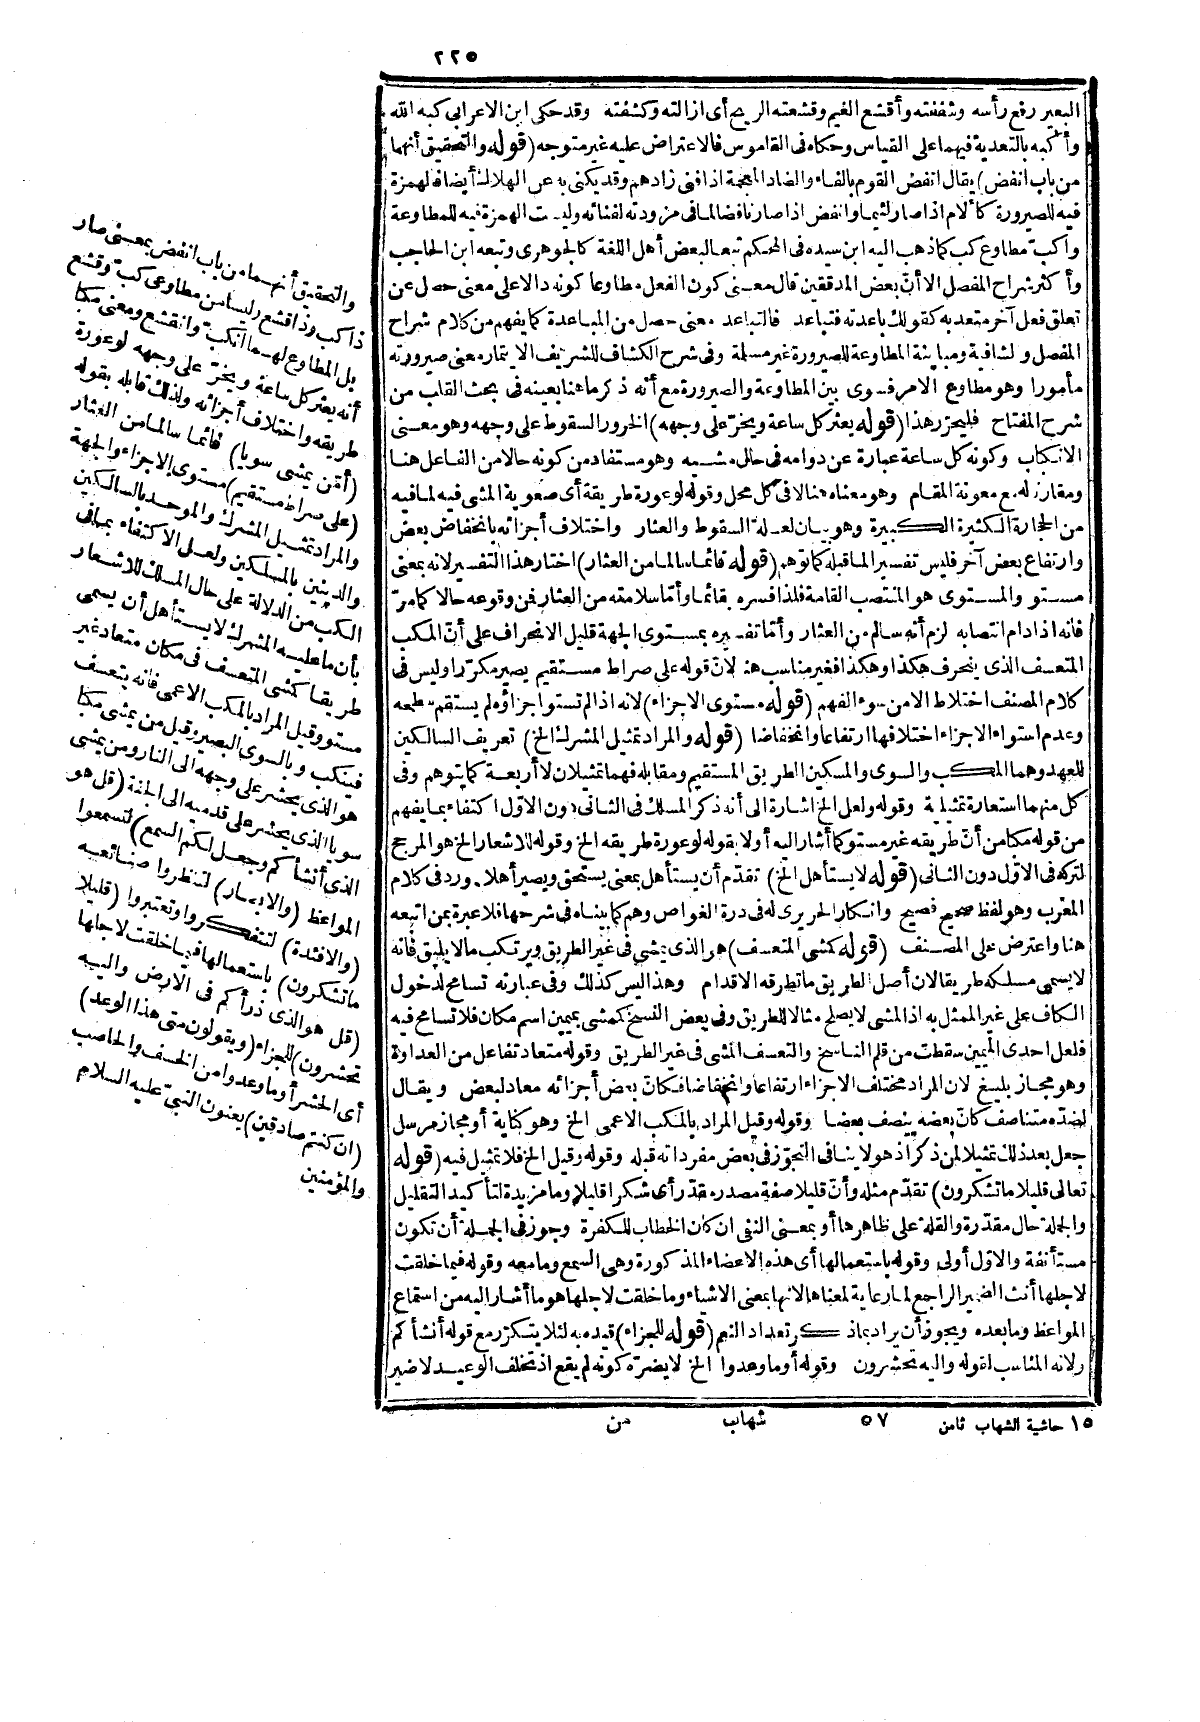 ٢٢٥
البعير رفع رأسه وشنقته وأقشع الغيم وقشعته الريح أى ازالته وكشفته وقد حكى ابن الاعرابى كبه الله
وأكبه بالتعدية فيهما على القياس وحكاه فى القاموس فالاعتراض عليه غير متوجه (قوله والتحقيق أنهما
من باب انفض) يقال انفض القوم بالفاء والضاد المعجمة اذا فنى زادهم وقد يكنى به عن الهلاك أيضا فالهمزة
فيه للصيرورة كألام اذا صار لئيما وانفض اذا صار نافضا لما فى مزودته لفنائه وليست الهمزة فيه للمطاوعة
وأكب مطاوع كب كما ذهب اليه ابن سيده فى المحكم تبعا لبعض أهل اللغة كالجوهرى وتبعه ابن الحاجب
وأكثر شراح المفصل الا أن بعض المدققين قال معنى كون الفعل مطاوعا كونه دالا على معنى حصل عن
تعلق فعل آخر متعد به كقولك باعدته فتباعد فالتباعد معنى حصل من المباعدة كما يفهم من كلام شراح
المفصل والشافية ومباينة المطاوعة للصيرورة غير مسلمة وفى شرح الكشاف للشريف الايتمار معنى صيرورته
مأمورا وهو مطاوع الامر فسوى بين المطاوعة والصيرورة مع أنه ذكر ما هنا بعينه فى بحث القلب من
شرح المفتاح فليحرر هذا (قوله يعثر كل ساعة ويخر على وجهه) الخرور السقوط على وجهه وهو معنى
الانكباب وكونه كل ساعة عبارة عن دوامه فى حال مشيه وهو مستفاد من كونه حالا من الفاعل هنا
ومقارنا له مع معونة المقام وهو معناه هنا لا فى كل محل وقوله لوعورة طريقة أى صعوبة المشى فيه لما فيه
من الحجارة الكثيرة الكبيرة وهو بيان لعلة السقوط والعثار واختلاف أجزائه بانخفاض بعض
وارتفاع بعض آخر فليس تفسيرا لما قبله كما توهم (قوله قائما سالما من العثار) اختار هذا التفسير لانه بمعنى
مستو والمستوى هو المنتصب القامة فلذا فسره بقائما وأما سلامته من العثار فمن وقوعه حالا كما مر
فانه اذا دام انتصابه لزم أنه سالم من العثار وأما تفسيره بمستوى الجهة قليل الانحراف على أن المكب
المتعسف الذى ينحرف هكذا وهكذا فغير مناسب هنا لان قوله على صراط مستقيم يصير مكررا وليس فى
كلام المصنف اختلاط الا من سوء الفهم (قوله مستوى الاجزاء) لانه اذا لم تستو اجزاؤه لم يستقم سطحه
وعدم استواء الاجزاء اختلافها ارتفاعا وانخفاضا (قوله والمراد تمثيل المشرك الخ) تعريف السالكين
للعهد وهما المكب والسوى والمسلكين الطريق المستقيم ومقابله فهما تمثيلان لا أربعة كما يتوهم وفى
كل منهما استعارة تمثيلية وقوله ولعل الخ اشارة الى أنه ذكر المسلك فى الثانى دون الاول اكتفاء بما يفهم
من قوله مكبا من أن طريقه غير مستو كما أشار اليه أولا بقوله لوعورة طريقه الخ وقوله للاشعار الخ هو المرجح
لتركه فى الاول دون الثانى (قوله لا يستأهل الخ) تقدم أن يستأهل بمعنى يستحق ويصير أهلا ورد فى كلام
المعرب وهو لفظ صحيح فصيح وانكار الحريرى له فى درة الغواص وهم كما بيناه فى شرحها فلا عبرة بمن اتبعه
هنا واعترض على المصنف (قوله كمشى المتعسف) هو الذى يمشى فى غير الطريق ويرتكب ما لا يليق فانه
لا يسمى مسلكه طريقا لان أصل الطريق ما تطرقه الاقدام وهذا ليس كذلك وفى عبارته تسامح لدخول
الكاف على غير الممثل به اذ المشى لا يصلح مثالا للطريق وفى بعض النسخ كممشى بميمين اسم مكان فلا تسامح فيه
فلعل احدى الميمين سقطت من قلم الناسخ والتعسف المشى فى غير الطريق وقوله متعاد تفاعل من العداوة
وهو مجاز بليغ لان المراد مختلف الاجزاء ارتفاعا وانخفاضا فكأن بعض أجزائه معاد لبعض ويقال
لضده متناصف كأن بعضه ينصف بعضا وقوله وقيل المراد بالمكب الاعمى الخ وهو كناية أو مجاز مرسل
جعل بعد ذلك تمثيلا لمن ذكر اذ هو لا ينافى التجوز فى بعض مفرداته قبله وقوله وقيل الخ فلا تمثيل فيه (قوله
تعالى قليلا ما تشكرون) تقدم مثله وأن قليلا صفة مصدر مقدر أى شكرا قليلا وما مزيدة لتأكيد التقليل
والجملة حال مقدرة والقلة على ظاهرها أو بمعنى النفى ان كان الخطاب للكفرة وجوز فى الجملة أن تكون
مستأنفة والاول أولى وقوله باستعمالها أى هذه الاعضاء المذكورة وهى السمع وما معه وقوله فيما خلقت
لاجلها أنث الضمير الراجع لما رعاية لمعناها لانها بمعنى الاشياء وما خلقت لاجلها هو ما أشار اليه من استماع
المواعظ وما بعده ويجوز أن يراد بما ذكر تعداد النعم (قوله للجزاء) قيده به لئلا يتكرر مع قوله أنشأكم
ولانه المناسب لقوله واليه تحشرون وقوله أو ما وعدوا الخ لا يضره كونه لم يقع اذ تخلف الوعيد لا ضير
١٥ حاشية الشهاب ثامن
٥٧
شهاب
من
والتحقيق أنهما من باب انفض بمعنى صار
ذا كب وذا قشع وليسا من مطاوعى كب وقشع
بل المطاوع لهما انكب وانقشع ومعنى مكبا
أنه يعثر كل ساعة ويخر على وجهه لوعورة
طريقه واختلاف أجزائه ولذلك قابله بقوله
(أمن يمشى سويا) قائما سالما من العثار
(على صراط مستقيم) مستوى الاجزاء والجهة
والمراد تمثيل المشرك والموحد بالسالكين
والدينين بالمسلكين ولعل الاكتفاء بما فى
الكب من الدلالة على حال المسلك للاشعار
بأن ما عليه المشرك لا يستأهل أن يسمى
طريقا كمشى المتعسف فى مكان متعاد غير
مستو وقيل المراد بالمكب الاعمى فانه يتعسف
فينكب وبالسوى البصير وقيل من يمشى مكبا
هو الذى يحشر على وجهه الى النار ومن يمشى
سويا الذى يحشر على قدميه الى الجنة (قل هو
الذى أنشأكم وجعل لكم السمع) لتسمعوا
المواعظ (والابصار) لتنظروا صنائعه
(والافئدة) لتتفكروا وتعتبروا (قليلا
ما تشكرون) باستعمالها فيما خلقت لاجلها
(قل هو الذى ذرأكم فى الارض واليه
تحشرون) للجزاء (ويقولون متى هذا الوعد)
أى الحشر أو ما وعدوا من الخسف والحاصب
(ان كنتم صادقين) يعنون النبى عليه السلام
والمؤمنين